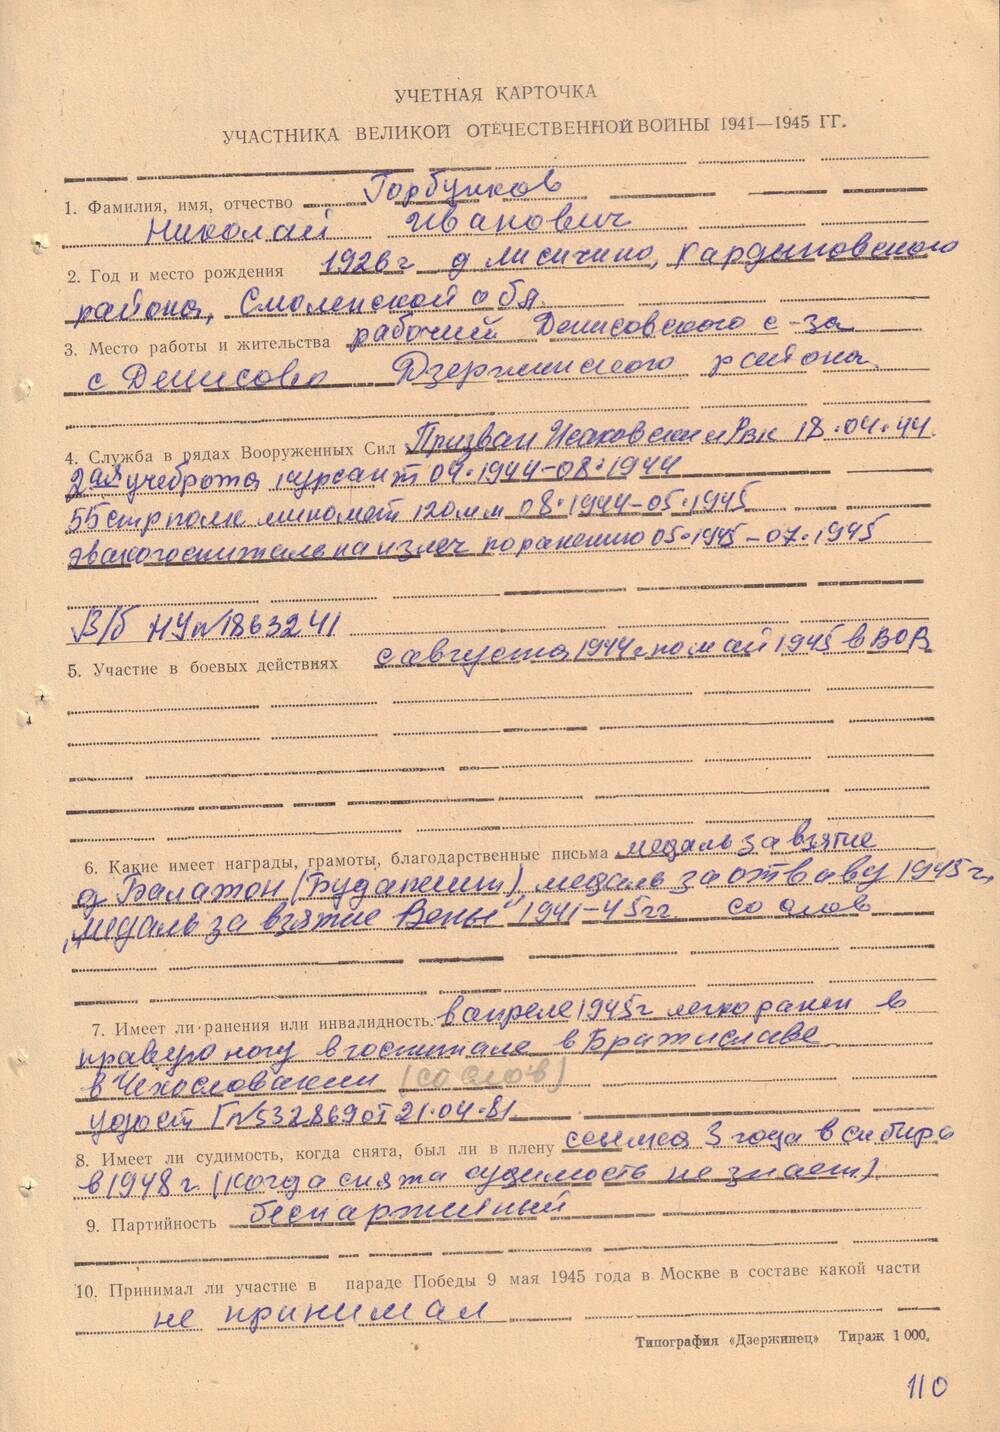 УЧЕТНАЯ КАРТОЧКА
УЧАСТНИКА ВЕЛИКОЙ ОТЕЧЕСТВЕННОЙ ВОЙНЫ 1941—1945 ГГ.
1. Фамилия, имя, отчество Горбунков
Николай Иванович
2. Год и место рождения 1926 г д Лисичино, Кардымовского
района, Смоленской обл.
3. Место работы и жительства рабочий Денисовского с-за
с Денисово Дзержинского района.
4. Служба в рядах Вооруженных Сил Призван Исаковским Рвк 18.04.44.
2ая учеброта курсант 04.1944-08.1944
55 стр полк миномёт 120 мм 08.1944-05.1945
эвакогоспиталь на излеч по ранению 05.1945-07.1945
В/б НУ № 1863241
5. Участие в боевых действиях с августа 1944 г по май 1945 в ВОВ
6. Какие имеет награды, грамоты, благодарственные письма медаль за взятие
д Балатон (Будапешт), медаль за отвагу 1945 г,
„медаль за взятие Вены" 1941-45 гг. со слов
7. Имеет ли ранения или инвалидность. в апреле 1945 г легко ранен в
правую ногу в госпитале в Братиславе
в Чехословакии (со слов)
удост Г № 532869 от 21.04.81
8. Имеет ли судимость, когда снята, был ли в плену ссылка 3 года в сибирь
в 1948 г. (когда снята судимость не знает)
9. Партийность беспартийный
10. Принимал ли участие в параде Победы 9 мая 1945 года в Москве в составе какой части
не принимал
Типография «Дзержинец» Тираж 1 000.
110